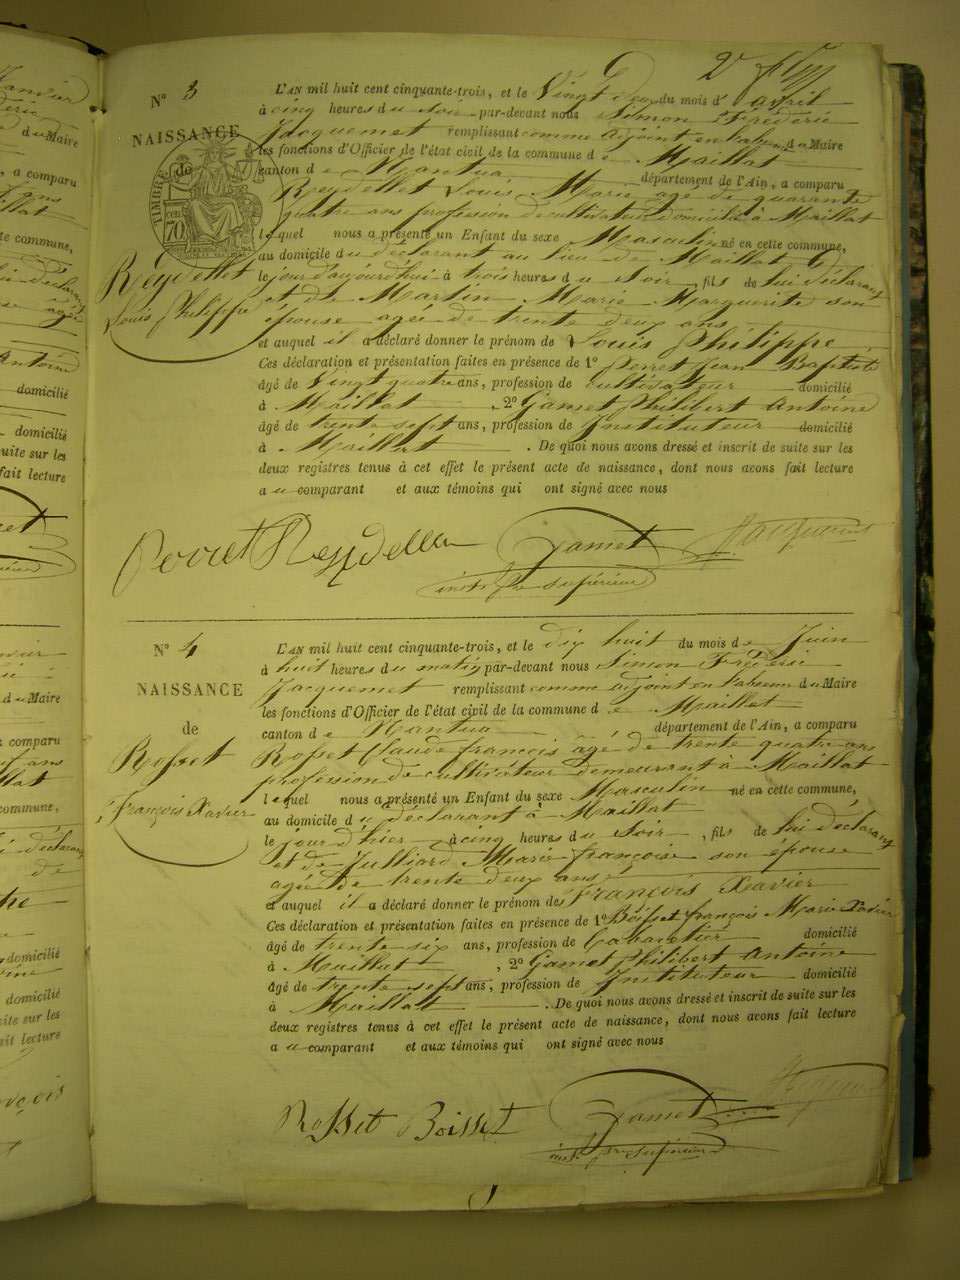 Nº 3
NAISSANCE
de
TIMBRE
70
Reydellet
Louis Philippe
L'AN mil huit cent cinquante-trois, et le Vingt deux du mois d'avril
à cinq heures du soir par-devant nous Simon Fréderic
Jacquemet remplissant comme adjoint en l'absence du Maire
les fonctions d'Officier de l'état civil de la commune de Maillat
canton de Nantua département de l'Ain, a comparu
Reydellet Louis Marie agé de quarante
quatre ans profession de cultivateur domicilié à Maillat
lequel nous a présenté un Enfant du sexe Masculin né en cette commune,
au domicile du déclarant au lieu de Maillat
le jour d'aujourd'hui à trois heures du soir, fils de lui déclarant
et de Martin Marie Marguerite son
épouse agée de trente deux ans
et auquel il a déclaré donner le prénom de Louis Philippe
Ces déclaration et présentation faites en présence de 1º Perret Jean Baptiste
âgé de Vingt quatre ans, profession de cultivateur domicilié
à Maillat, 2º Gamet Philibert Antoine
âgé de trente sept ans, profession de Instituteur domicilié
à Maillat. De quoi nous avons dressé et inscrit de suite sur les
deux registres tenus à cet effet le présent acte de naissance, dont nous avons fait lecture
au comparant et aux témoins qui ont signé avec nous
Perret Reydellet Gamet Jacquemet
instr supérieur
Nº 4
NAISSANCE
de
Rosset
François Xavier
L'AN mil huit cent cinquante-trois, et le dix huit du mois de Juin
à huit heures du matin par-devant nous Simon Fréderic
Jacquemet remplissant comme adjoint en l'absence du Maire
les fonctions d'Officier de l'état civil de la commune de Maillat
canton de Nantua département de l'Ain, a comparu
Rosset Claude françois âgé de trente quatre ans
profession de cultivateur demeurant à Maillat
lequel nous a présenté un Enfant du sexe Masculin né en cette commune,
au domicile du déclarant à Maillat
le jour d'hier à cinq heures du soir, fils de lui déclarant
et de Julliard Marie françoise son épouse
agée de trente deux ans
et auquel il a déclaré donner le prénom des François Xavier
Ces déclaration et présentation faites en présence de 1º Boisset françois Marie Xavier
âgé de trente six ans, profession de Cabaretier domicilié
à Maillat, 2º Gamet Philibert Antoine
âgé de trente sept ans, profession de Instituteur domicilié
à Maillat. De quoi nous avons dressé et inscrit de suite sur les
deux registres tenus à cet effet le présent acte de naissance, dont nous avons fait lecture
au comparant et aux témoins qui ont signé avec nous
Rosset Boisset Gamet Jacquemet
inst. supérieur